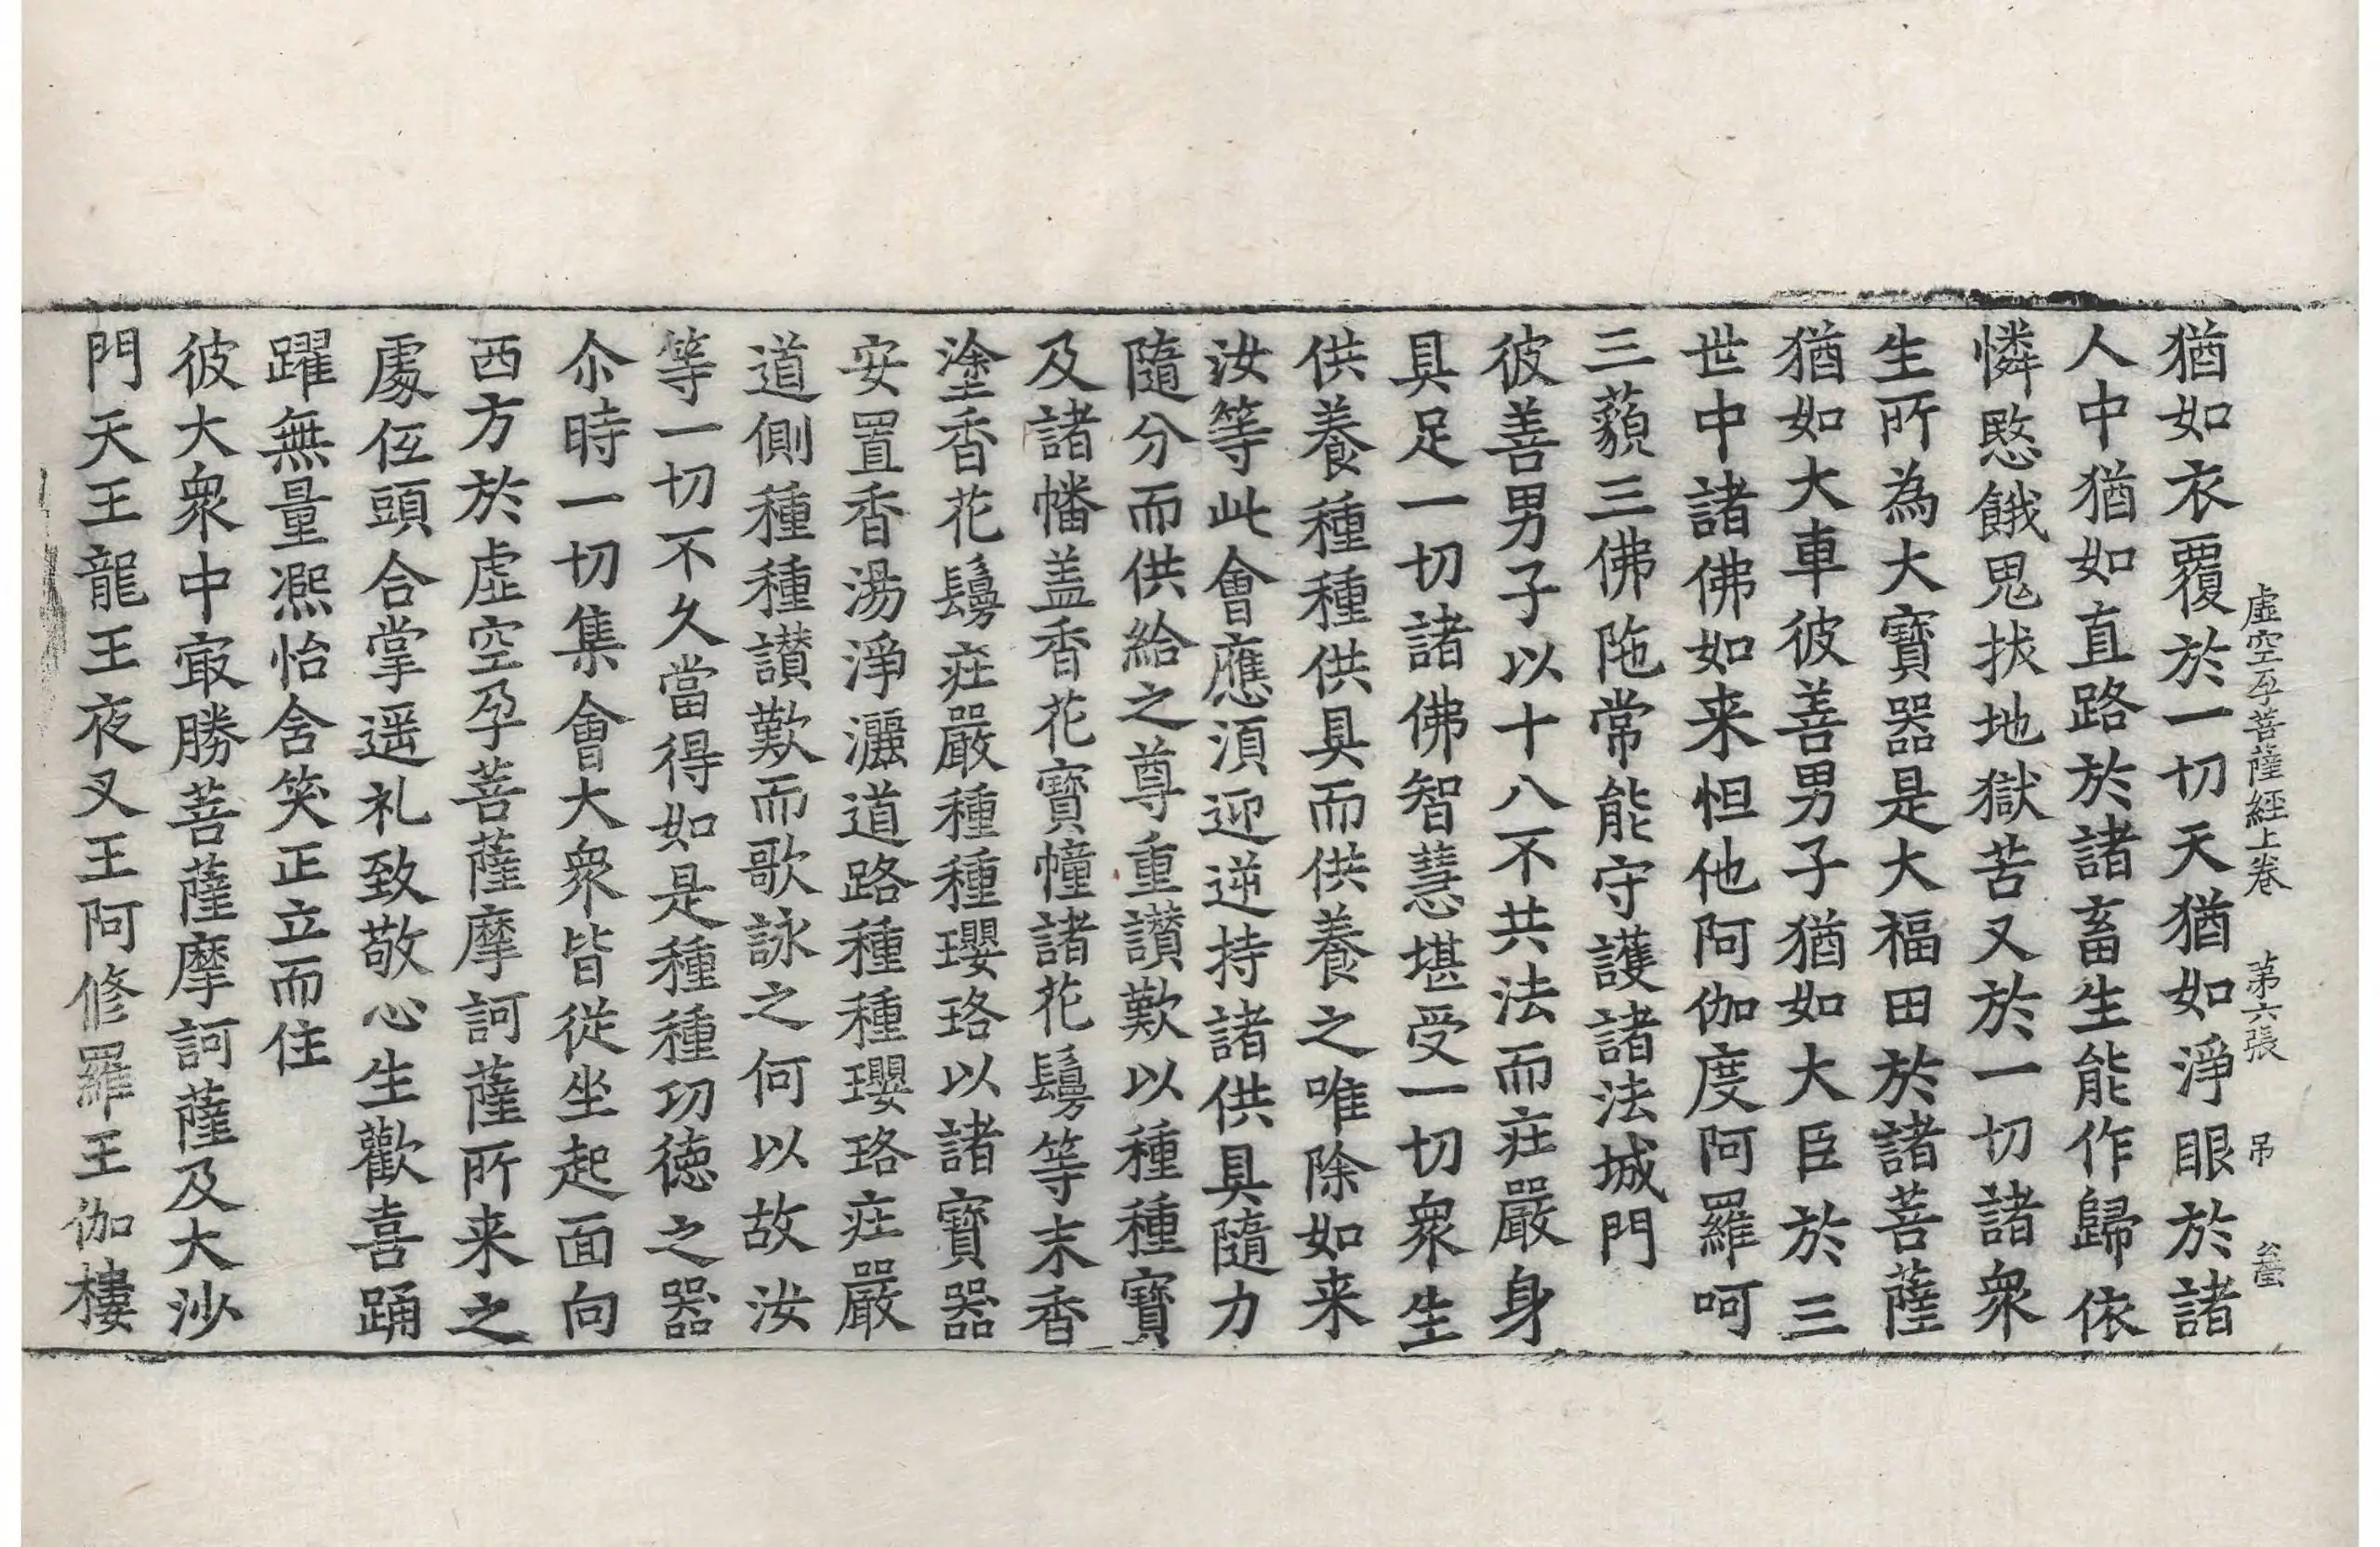 虛空孕菩薩經上卷 第六張 吊
猶如衣覆於一切天猶如淨眼於諸
人中猶如直路於諸畜生能作歸依
憐愍餓鬼拔地獄苦又於一切諸衆
生所為大寶器是大福田於諸菩薩
猶如大車彼善男子猶如大臣於三
世中諸佛如来怛他阿伽度阿羅呵
三藐三佛陁常能守護諸法城門
彼善男子以十八不共法而莊嚴身
具足一切諸佛智慧堪受一切衆生
供養種種供具而供養之唯除如来
汝等此會應湏迎逆持諸供具隨力
隨分而供給之尊重讃歎以種種寶
及諸幡盖香花寶幢諸花鬘等末香
塗香花鬘莊嚴種種瓔珞以諸寶器
安置香湯淨灑道路種種瓔珞莊嚴
道側種種讃歎而歌詠之何以故汝
等一切不久當得如是種種功徳之器
尒時一切集會大衆皆從坐起面向
西方於虛空孕菩薩摩訶薩所来之
處伍頭合掌遥礼致敬心生歡喜踊
躍無量凞怡含笑正立而住
彼大衆中㝡勝菩薩摩訶薩及大沙
門天王龍王夜叉王阿修羅王伽樓